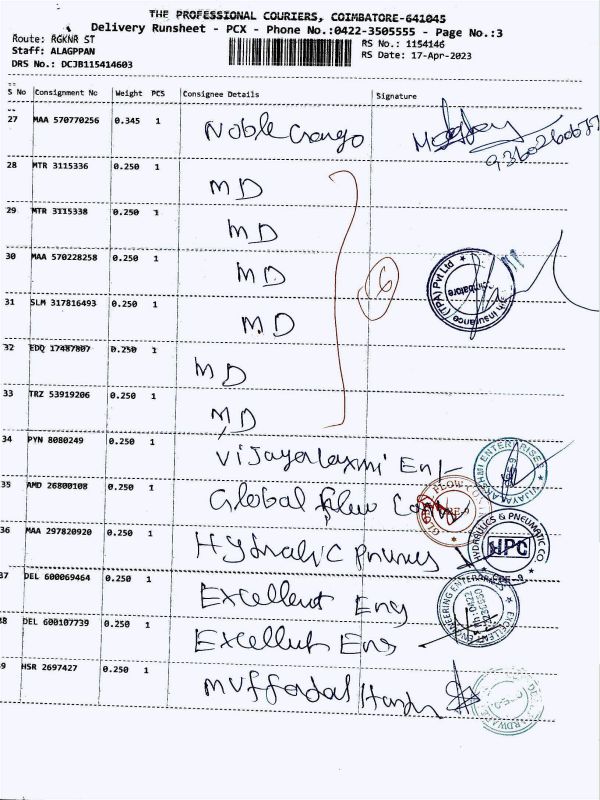 THE PROFESSIONAL COURIERS, COIMBATORE-641045
Delivery Runsheet - PCX - Phone No.:0422-3505555 - Page No.:3
Route: RGKNR ST
RS No.: 1154146
Staff: ALAGPPAN
RS Date: 17-Apr-2023
DRS No.: DCJB115414603
S No Consignment No Weight PCS Consignee Details Signature
27 MAA 570770256 0.345 1 Noble
28 MTR 3115336 0.250 1 MD
29 MTR 3115338 0.250 1 MD
30 MAA 570228258 0.250 1 MD
6
31 SLM 317816493 0.250 1 MD
32 EDQ 17487807 0.250 1 MD
33 TRZ 53919206 0.250 1 MD
34 PYN 8080249 0.250 1 Vijayalaxmi Ent
35 AMD 26800108 0.250 1 Global Flow
36 MAA 297820920 0.250 1
37 DEL 600069464 0.250 1 Excellent Eng
38 DEL 600107739 0.250 1 Excellent Eng
39 HSR 2697427 0.250 1
Insurance (TPA) Pvt Ltd
VIJAYALAKSHMI ENTERPRISES
HYDRAULICS & PNEUMATIC CO
HPC
CBE-9
EXCELLENT ENGINEERING ENTERPRISES